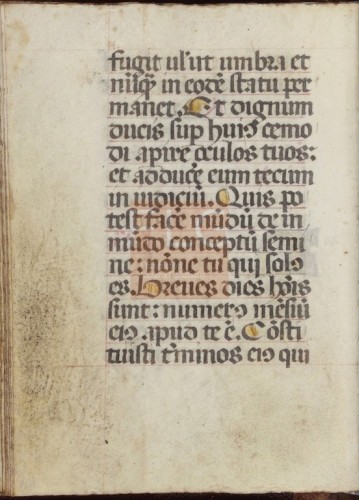 fugit ul'ut umbra et
nūq̄ in eodē statu per
manet. Et dignum
ducis sup huiꝰcemo
di apire oculos tuos:
et adducē eum tecum
in iudiciū. Quis po
test facē mūdū de in
mūdo conceptū semi
ne: nōne tu qui solꝰ
es. Breues dies hoīs
sunt: numerꝰ mēsiū
eiꝰ apud te ē. Cōsti
tuisti t̄minos eiꝰ qui